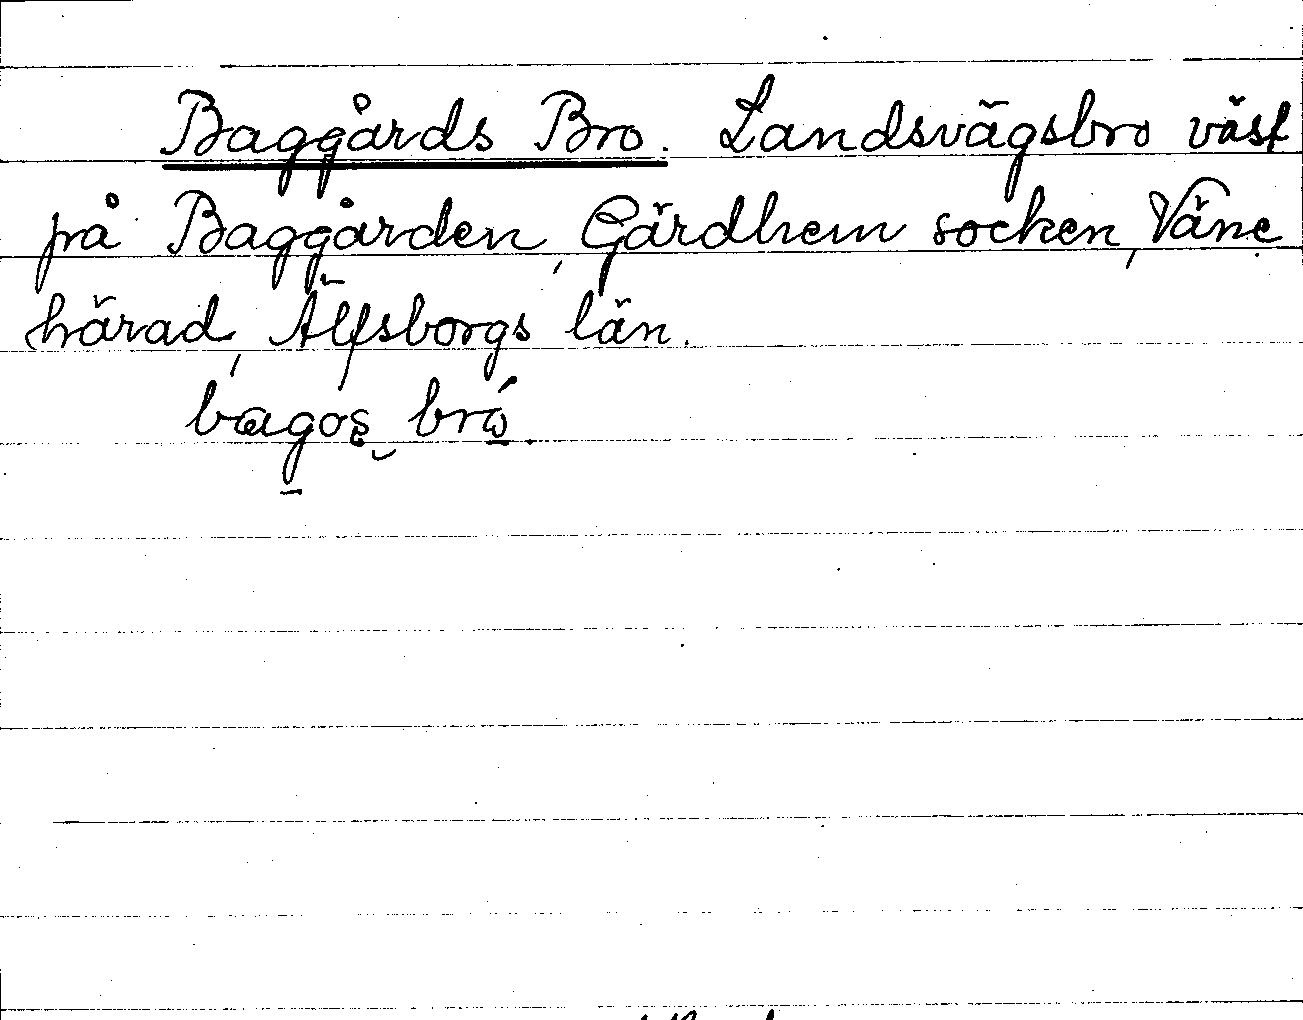 Baggårds Bro. Landsvägsbro väst
på Baggården, Gärdhem socken, Väne
härad, Älfsborgs län.
bagos bro.